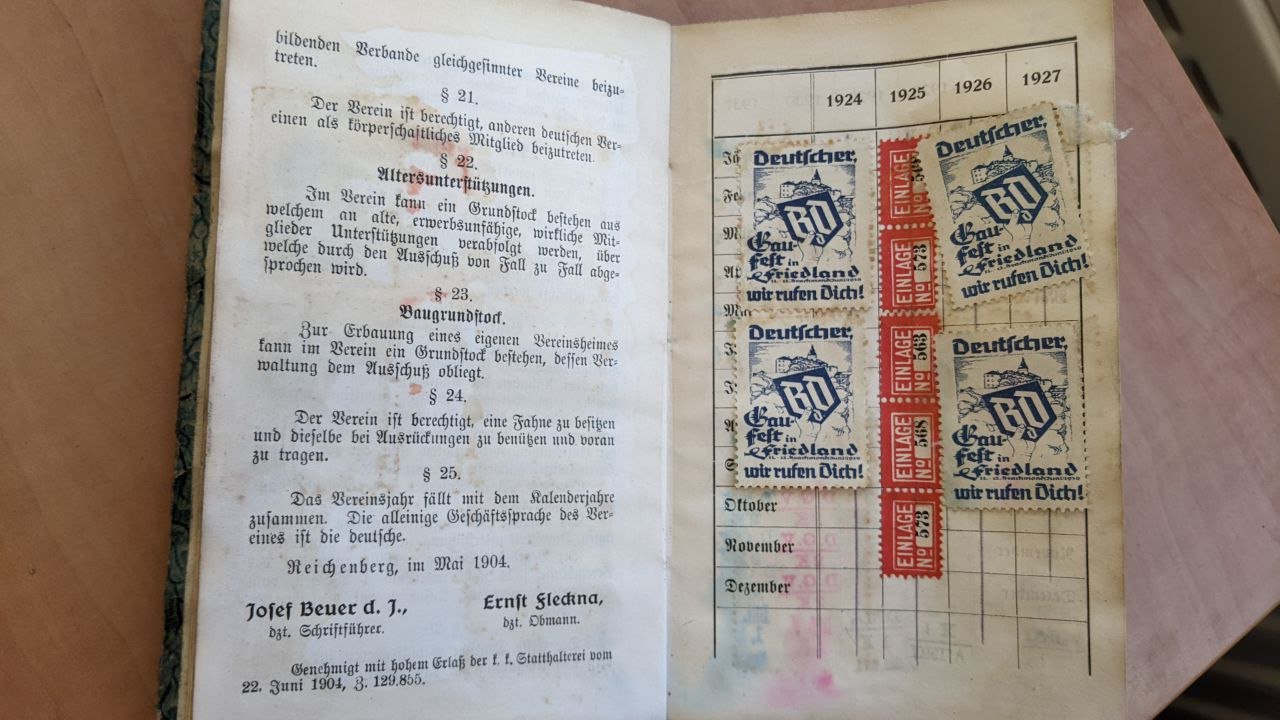 bildenden Verbande gleichgesinnter Vereine beizu-
treten.
§ 21.
Der Verein ist berechtigt, anderen deutschen Ver-
einen als körperschaftliches Mitglied beizutreten.
§ 22.
Altersunterstützungen.
Im Verein kann ein Grundstock bestehen aus
welchem an alte, erwerbsunfähige, wirkliche Mit-
glieder Unterstützungen verabfolgt werden, über
welche durch den Ausschuß von Fall zu Fall abge-
sprochen wird.
§ 23.
Baugrundstock.
Zur Erbauung eines eigenen Vereinsheimes
kann im Verein ein Grundstock bestehen, dessen Ver-
waltung dem Ausschuß obliegt.
§ 24.
Der Verein ist berechtigt, eine Fahne zu besitzen
und dieselbe bei Ausrückungen zu benützen und voran
zu tragen.
§ 25.
Das Vereinsjahr fällt mit dem Kalenderjahre
zusammen. Die alleinige Geschäftssprache des Ver-
eines ist die deutsche.
Reichenberg, im Mai 1904.
Josef Beuer d. J., Ernst Fleckna,
dzt. Schriftführer. dzt. Obmann.
Genehmigt mit hohem Erlaß der k. k. Statthalterei vom
22. Juni 1904, Z. 129.855.
1924 1925 1926 1927
Deutscher,
BD
Gau-
fest in
Friedland
wir rufen Dich!
Deutscher,
BD
Gau-
fest in
Friedland
wir rufen Dich!
EINLAGE
No
EINLAGE
No 573
EINLAGE
No 563
EINLAGE
No 568
EINLAGE
No 573
Deutscher,
BD
Gau-
fest in
Friedland
wir rufen Dich!
Deutscher,
BD
Gau-
fest in
Friedland
wir rufen Dich!
Oktober
November
Dezember